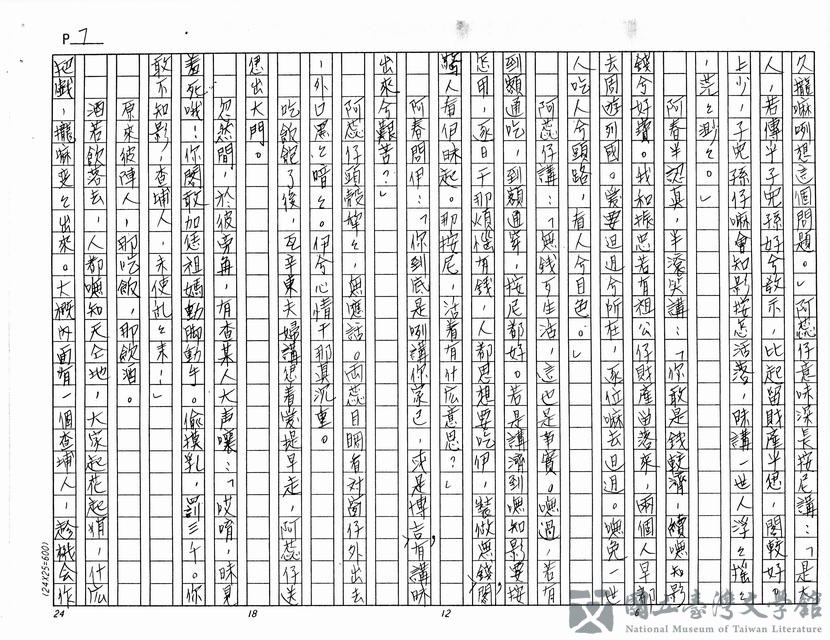 P 7
久攏嘛咧想這個問題。」阿蕊仔意味深長按尼講：「是大
人，若傳乎子兒孫好兮教示，比起留財產乎恁，閣較好。
上少，子兒孫仔嘛會知影按怎活落，昧講一世人浮浮搖搖
，茫茫渺渺。」
阿春半認真，半滾笑講：「你敢是錢較濟，續嘸知影
錢兮好寶。我和振忠若有祖公仔財產留落來，兩個人早都
去周遊列國。愛要𨑨迌兮所在，逐位嘛去𨑨迌。嘸免一世
人吃人兮頭路，看人兮目色。」
阿蕊仔講：「無錢歹生活，這也是事實。嘸過，若有
到額通吃，到額通穿，按尼都好。若是講濟到嘸知影要按
怎用，逐日干那煩惱有錢，人都思想要吃伊，裝做無錢閣
驚人看伊昧起。那按尼，活着有什麼意思？」
阿春問伊：「你到底是咧講你家己，或是博言有講昧
出來兮艱苦？」
阿蕊仔頭殼犂犂，無應話。雨蕊目睭看對窗仔外出去
，外口黑黑暗暗。伊兮心情干那真沉重。
吃飲飽了後，瓦辛東夫婦講想着愛提早走，阿蕊仔送
恁出大門。
忽然間，於彼旁角，有查某人大声嚷：「哎唷，昧見
羞死哦！你閣敢加恁祖媽動腳動手。偷摸乳，罰三千。你
敢不知影，查埔人，未使亂亂來！」
原來彼陣人，那吃飯，那飲酒。
酒若飲落去，人都嘸知天仝地，大家起花起煩，什麼
把戲，攏嘛變變出來。大概內面有一個查埔人，趁機會作
(24X25=600)
24 18 12 6
國立臺灣文學館
National Museum of Taiwan Literature